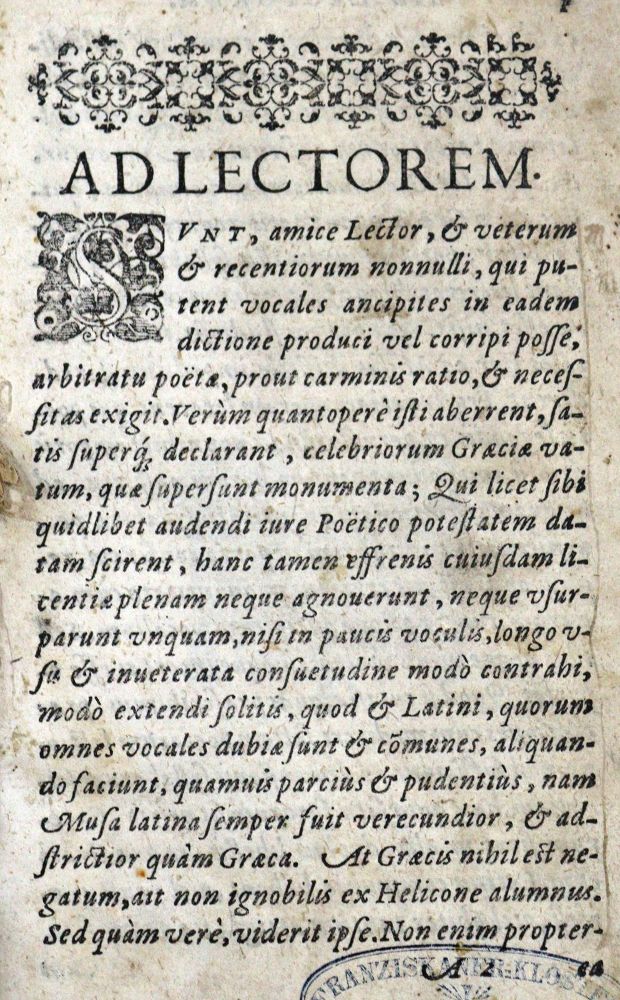 AD LECTOREM.
SVNT, amice Lector, & veterum
& recentiorum nonnulli, qui pu-
tent vocales ancipites in eadem
dictione produci vel corripi posse,
arbitratu poëtæ, prout carminis ratio, & neces-
sitas exigit. Verùm quantoperè isti aberrent, sa-
tis superq́; declarant, celebriorum Græciæ va-
tum, quæ supersunt monumenta; Qui licet sibi
quidlibet audendi iure Poëtico potestatem da-
tam scirent, hanc tamen effrenis cuiusdam li-
centiæ plenam neque agnouerunt, neque vsur-
parunt vnquam, nisi in paucis voculis, longo v-
su & inueterata consuetudine modò contrahi,
modò extendi solitis, quod & Latini, quorum
omnes vocales dubiæ sunt & cõmunes, aliquan-
do faciunt, quamuis parciùs & pudentiùs, nam
Musa latina semper fuit verecundior, & ad-
strictior quàm Græca. At Græcis nihil est ne-
gatum, ait non ignobilis ex Helicone alumnus.
Sed quàm verè, viderit ipse. Non enim propter-
A 2 ea
FRANZISKANER-KLOSTER